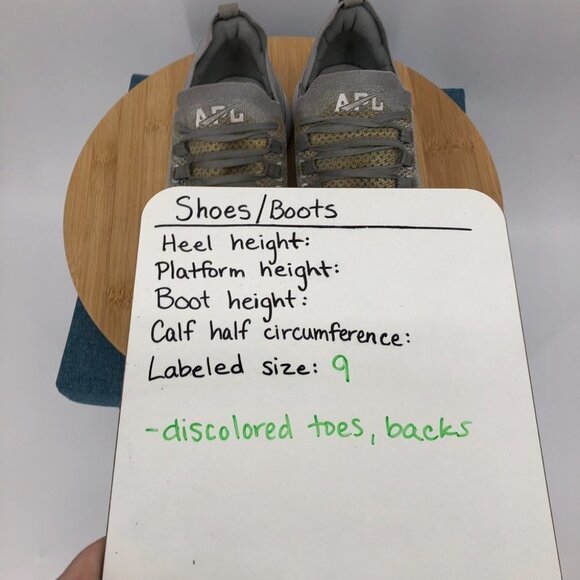 APL APL
Shoes/Boots
Heel height:
Platform height:
Boot height:
Calf half circumference:
Labeled size: 9
-discolored toes, backs